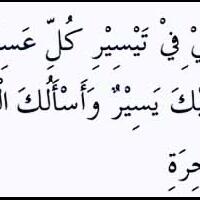 يْ فِيْ تَيْسِيْرِ كُلِّ عَسِ
يْكَ يَسِيْرٌ وَأَسْأَلُكَ الْ
خِرَةِ